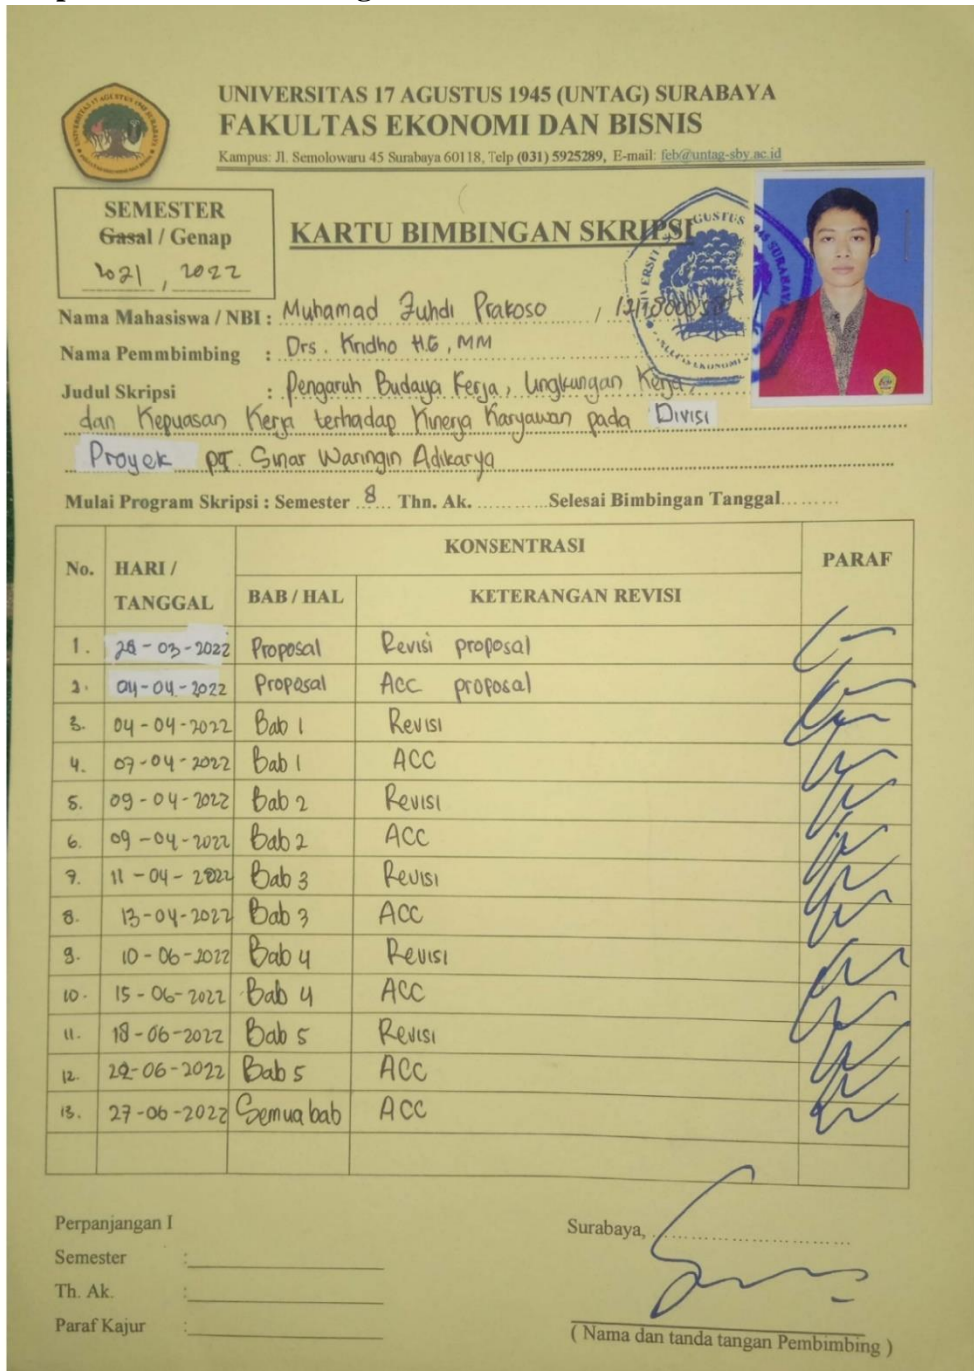 UNIVERSITAS 17 AGUSTUS 1945 (UNTAG) SURABAYA
FAKULTAS EKONOMI DAN BISNIS
Kampus: Jl. Semolowaru 45 Surabaya 60118, Telp (031) 5925289, E-mail: feb@untag-sby.ac.id
SEMESTER
Gasal / Genap
2021, 2022
KARTU BIMBINGAN SKRIPSI
Nama Mahasiswa / NBI : Muhamad Zuhdi Prakoso /
Nama Pemmbimbing : Drs. Kridho H.G, MM
Judul Skripsi : Pengaruh Budaya Kerja, Lingkungan Kerja,
dan Kepuasan Kerja terhadap Kinerja Karyawan pada Divisi
Proyek PT. Sinar Waringin Adikarya
Mulai Program Skripsi : Semester 8 Thn. Ak. ............Selesai Bimbingan Tanggal.........
No. HARI / TANGGAL KONSENTRASI PARAF
BAB / HAL KETERANGAN REVISI
1. 28-03-2022 Proposal Revisi proposal
2. 04-04-2022 Proposal Acc proposal
3. 04-04-2022 Bab 1 Revisi
4. 07-04-2022 Bab 1 ACC
5. 09-04-2022 Bab 2 Revisi
6. 09-04-2022 Bab 2 ACC
7. 11-04-2022 Bab 3 Revisi
8. 13-04-2022 Bab 3 ACC
9. 10-06-2022 Bab 4 Revisi
10. 15-06-2022 Bab 4 ACC
11. 18-06-2022 Bab 5 Revisi
12. 22-06-2022 Bab 5 ACC
13. 27-06-2022 Semua bab ACC
Perpanjangan I
Surabaya,
Semester :
Th. Ak. :
Paraf Kajur :
( Nama dan tanda tangan Pembimbing )